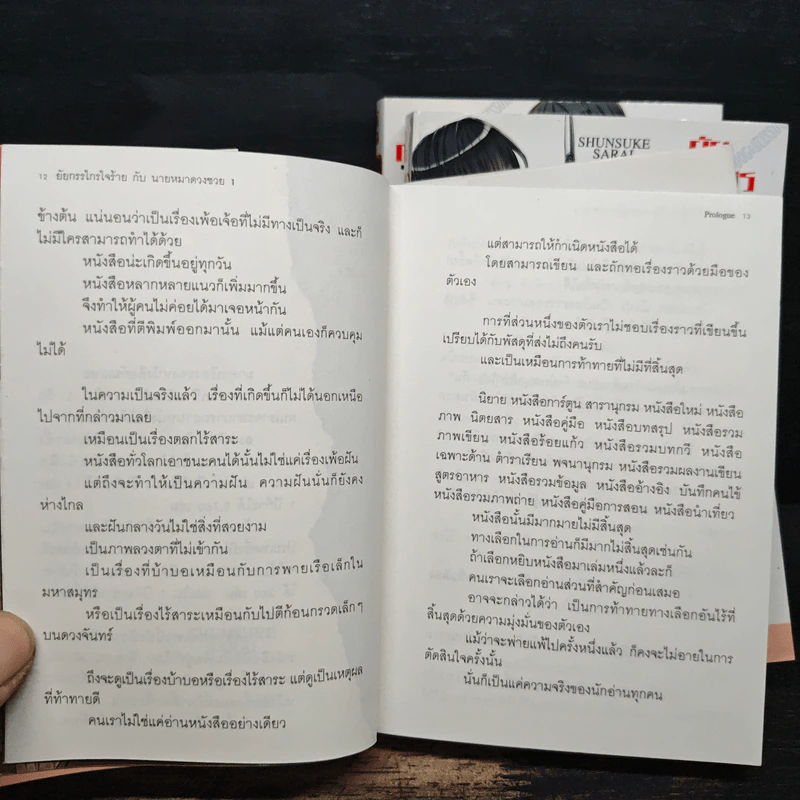 SHUNSUKE
SARAI
12 ยัยกรรไกรใจร้าย กับ นายหมาดวงซวย 1
ข้างต้น แน่นอนว่าเป็นเรื่องเพ้อเจ้อที่ไม่มีทางเป็นจริง และก็
ไม่มีใครสามารถทำได้ด้วย
หนังสือน่ะเกิดขึ้นอยู่ทุกวัน
หนังสือหลากหลายแนวก็เพิ่มมากขึ้น
จึงทำให้ผู้คนไม่ค่อยได้มาเจอหน้ากัน
หนังสือที่ตีพิมพ์ออกมานั้น แม้แต่คนเองก็ควบคุม
ไม่ได้
ในความเป็นจริงแล้ว เรื่องที่เกิดขึ้นก็ไม่ได้นอกเหนือ
ไปจากที่กล่าวมาเลย
เหมือนเป็นเรื่องตลกไร้สาระ
หนังสือทั่วโลกเอาชนะคนได้นั้นไม่ใช่แค่เรื่องเพ้อฝัน
แต่ถึงจะทำให้เป็นความฝัน ความฝันนั่นก็ยังคง
ห่างไกล
และฝันกลางวันไม่ใช่สิ่งที่สวยงาม
เป็นภาพลวงตาที่ไม่เข้ากัน
เป็นเรื่องที่บ้าบอเหมือนกับการพายเรือเล็กใน
มหาสมุทร
หรือเป็นเรื่องไร้สาระเหมือนกับไปตีก้อนกรวดเล็กๆ
บนดวงจันทร์
ถึงจะดูเป็นเรื่องบ้าบอหรือเรื่องไร้สาระ แต่ดูเป็นเหตุผล
ที่ท้าทายดี
คนเราไม่ใช่แค่อ่านหนังสืออย่างเดียว
Prologue 13
แต่สามารถให้กำเนิดหนังสือได้
โดยสามารถเขียน และถักทอเรื่องราวด้วยมือของ
ตัวเอง
การที่ส่วนหนึ่งของตัวเราไม่ชอบเรื่องราวที่เขียนขึ้น
เปรียบได้กับพัสดุที่ส่งไม่ถึงคนรับ
และเป็นเหมือนการท้าทายที่ไม่มีที่สิ้นสุด
นิยาย หนังสือการ์ตูน สารานุกรม หนังสือใหม่ หนังสือ
ภาพ นิตยสาร หนังสือคู่มือ หนังสือบทสรุป หนังสือรวม
ภาพเขียน หนังสือร้อยแก้ว หนังสือรวมบทกวี หนังสือ
เฉพาะด้าน ตำราเรียน พจนานุกรม หนังสือรวมผลงานเขียน
สูตรอาหาร หนังสือรวมข้อมูล หนังสืออ้างอิง บันทึกคนไข้
หนังสือรวมภาพถ่าย หนังสือคู่มือการสอน หนังสือนำเที่ยว
หนังสือนั้นมีมากมายไม่มีสิ้นสุด
ทางเลือกในการอ่านก็มีมากไม่สิ้นสุดเช่นกัน
ถ้าเลือกหยิบหนังสือมาเล่มหนึ่งแล้วละก็
คนเราจะเลือกอ่านส่วนที่สำคัญก่อนเสมอ
อาจจะกล่าวได้ว่า เป็นการท้าทายทางเลือกอันไร้ที่
สิ้นสุดด้วยความมุ่งมั่นของตัวเอง
แม้ว่าจะพ่ายแพ้ไปครั้งหนึ่งแล้ว ก็คงจะไม่อายในการ
ตัดสินใจครั้งนั้น
นั่นก็เป็นแค่ความจริงของนักอ่านทุกคน